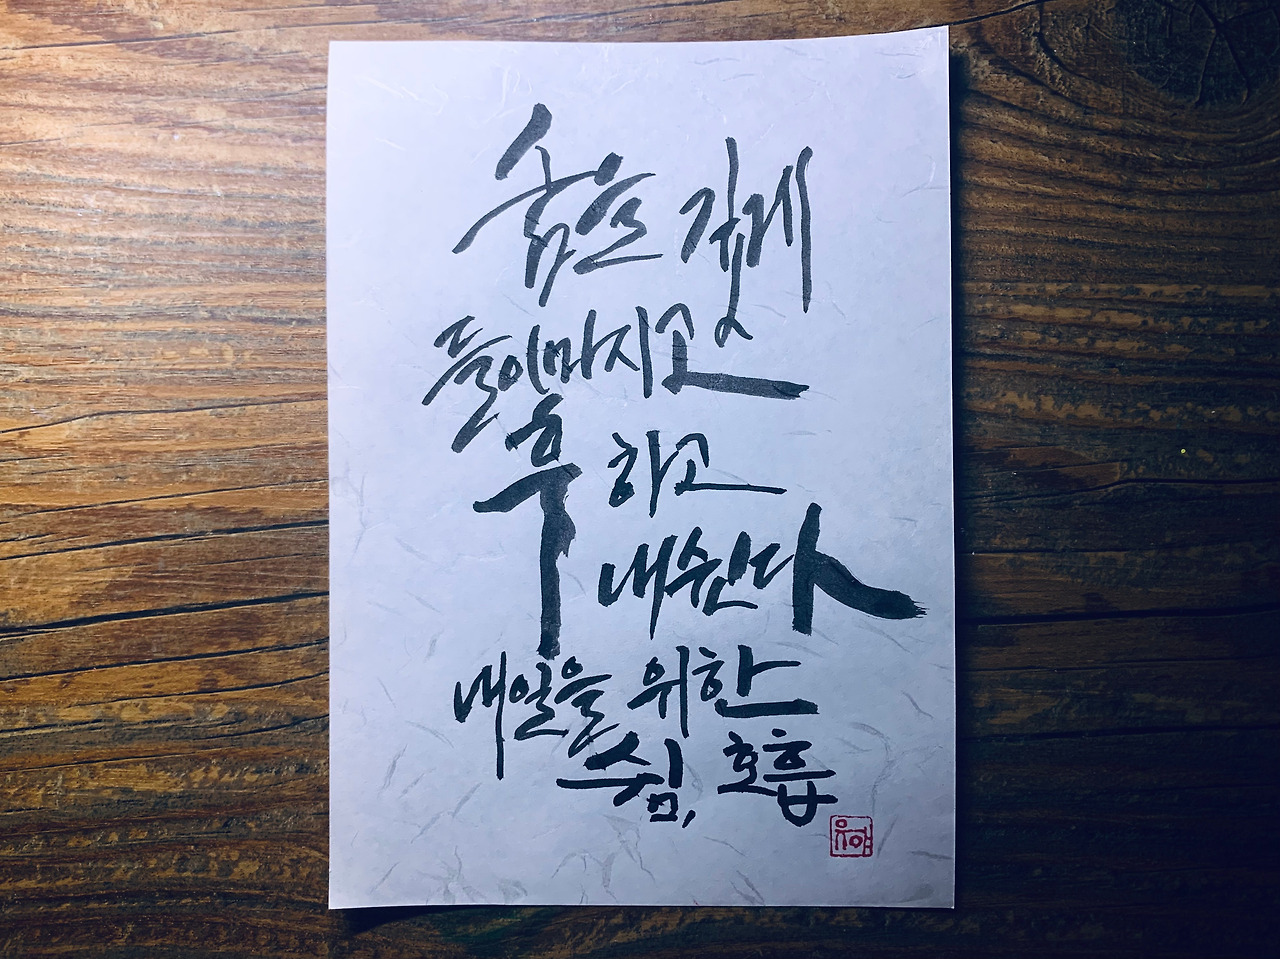 숨을 깊게
들이마시고
후 하고
내쉰다
내일을 위한
쉼, 호흡